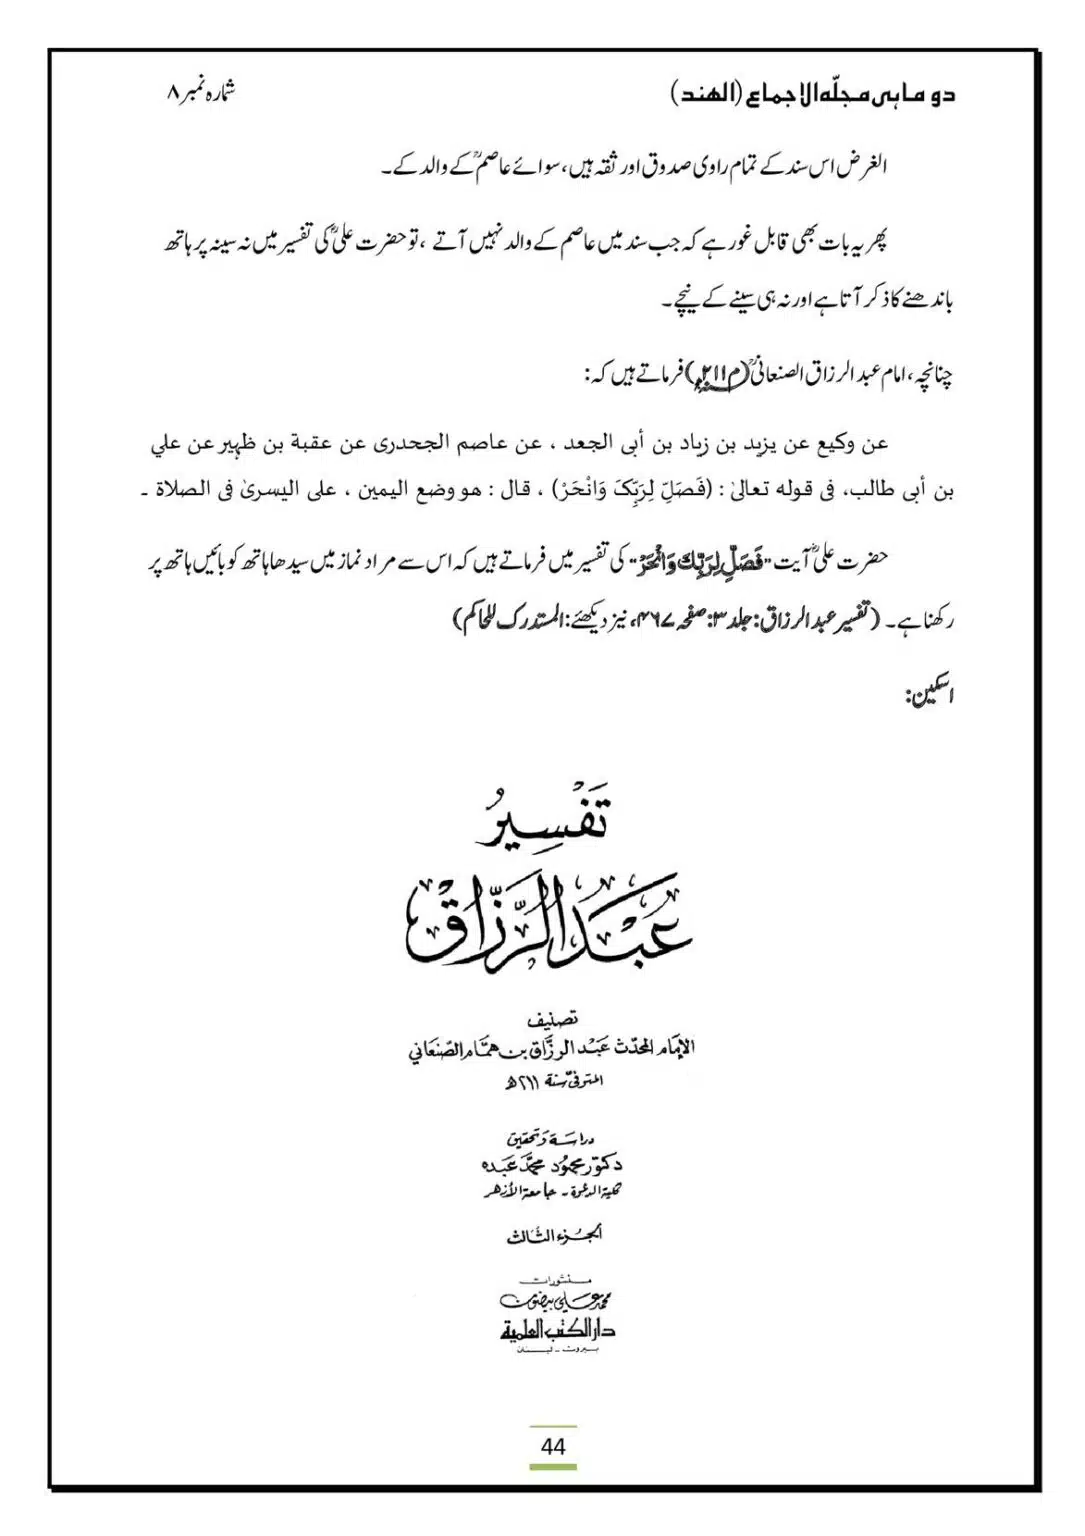 دو ماہی مجلّہ الاجماع (الھند)
شمارہ نمبر ۸
الغرض اس سند کے تمام راوی صدوق اور ثقہ ہیں، سوائے عاصمؒ کے والد کے۔
پھر یہ بات بھی قابل غور ہے کہ جب سند میں عاصم کے والد نہیں آتے ، تو حضرت علیؓ کی تفسیر میں نہ سینہ پر ہاتھ
باندھنے کا ذکر آتا ہے اور نہ ہی سینے کے نیچے۔
چنانچہ، امام عبد الرزاق الصنعانیؒ (م۲۱۱ھ) فرماتے ہیں کہ:
عن وکیع عن یزید بن زیاد بن أبی الجعد ، عن عاصم الجحدری عن عقبة بن ظہیر عن علي
بن أبی طالب، فی قوله تعالیٰ : (فَصَلِّ لِرَبِّکَ وَانْحَرْ) ، قال : هو وضع الیمین ، علی الیسریٰ فی الصلاة ۔
حضرت علیؓ آیت "فَصَلِّ لِرَبِّكَ وَانْحَرْ" کی تفسیر میں فرماتے ہیں کہ اس سے مراد نماز میں سیدھا ہاتھ کو بائیں ہاتھ پر
رکھنا ہے۔ (تفسیر عبد الرزاق: جلد ۳: صفحہ ۴۶۷، نیز دیکھئے: المستدرک للحاکم)
اسکین:
تَفْسِيرُ
عَبْدِ الرَّزَّاقِ
تصنيف
الإمَام المحدّث عَبْد الرزَّاق بن همَّام الصّنعَاني
المتوفى سنة ٢١١ هـ
دراسَة وَتحقيق
دكتور محمُود محمَّد عَبده
كلية الدعوة - جامعة الأزهر
الجُزء الثَّالث
منشورات
محمد علي بيضون
دار الكتب العلمية
بيروت - لبنان
44